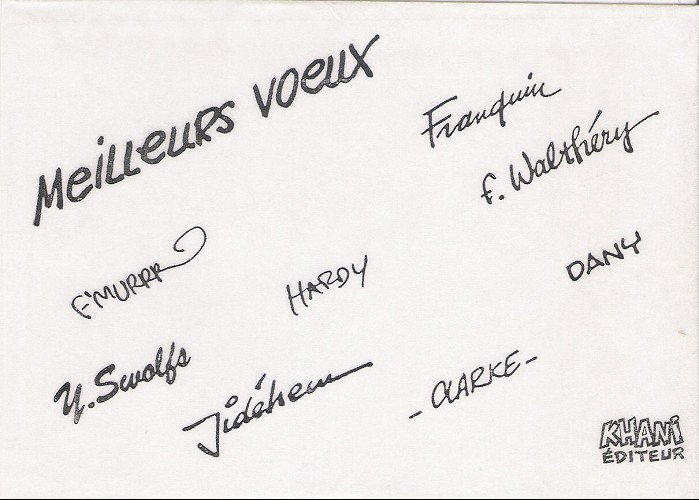 Meilleurs voeux
Franquin
f. Walthéry
F'MURRR
HARDY
DANY
Y. Swolfs
Jidéhem
- CLARKE -
KHANI
ÉDITEUR